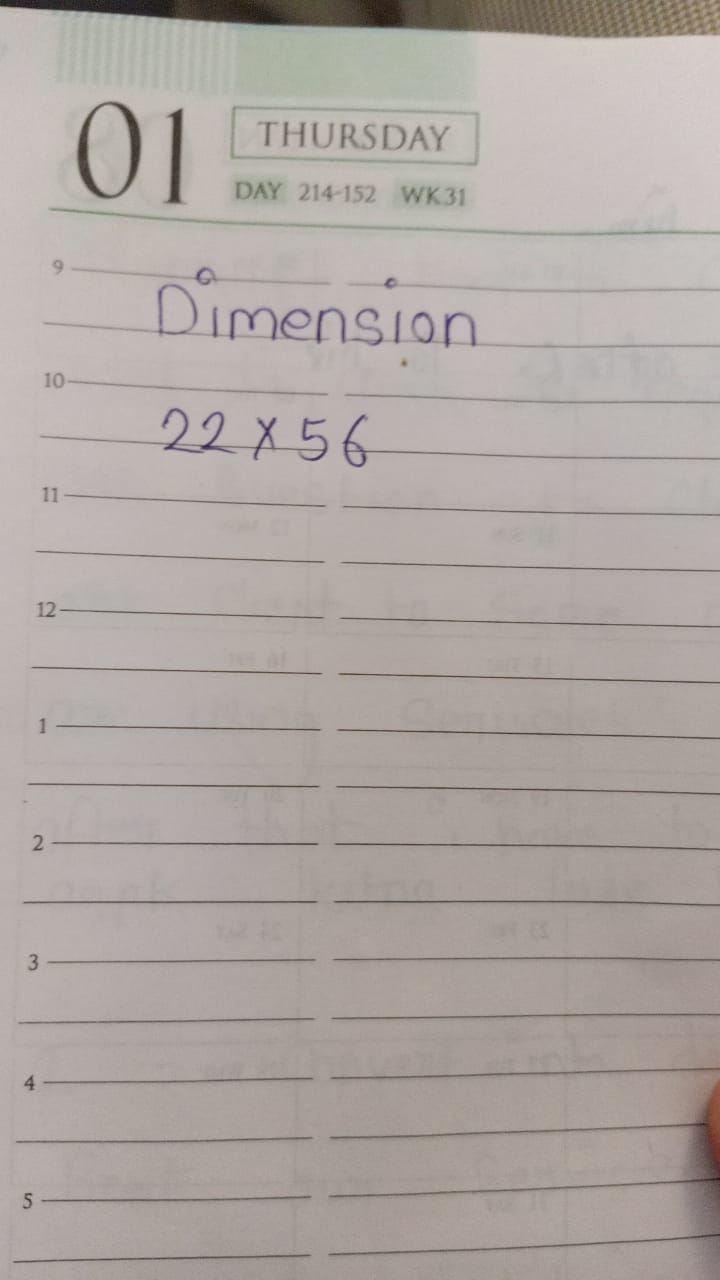 01
THURSDAY
DAY 214-152 WK31
9
Dimension
10
22 X 56
11
12
1
2
3
4
5